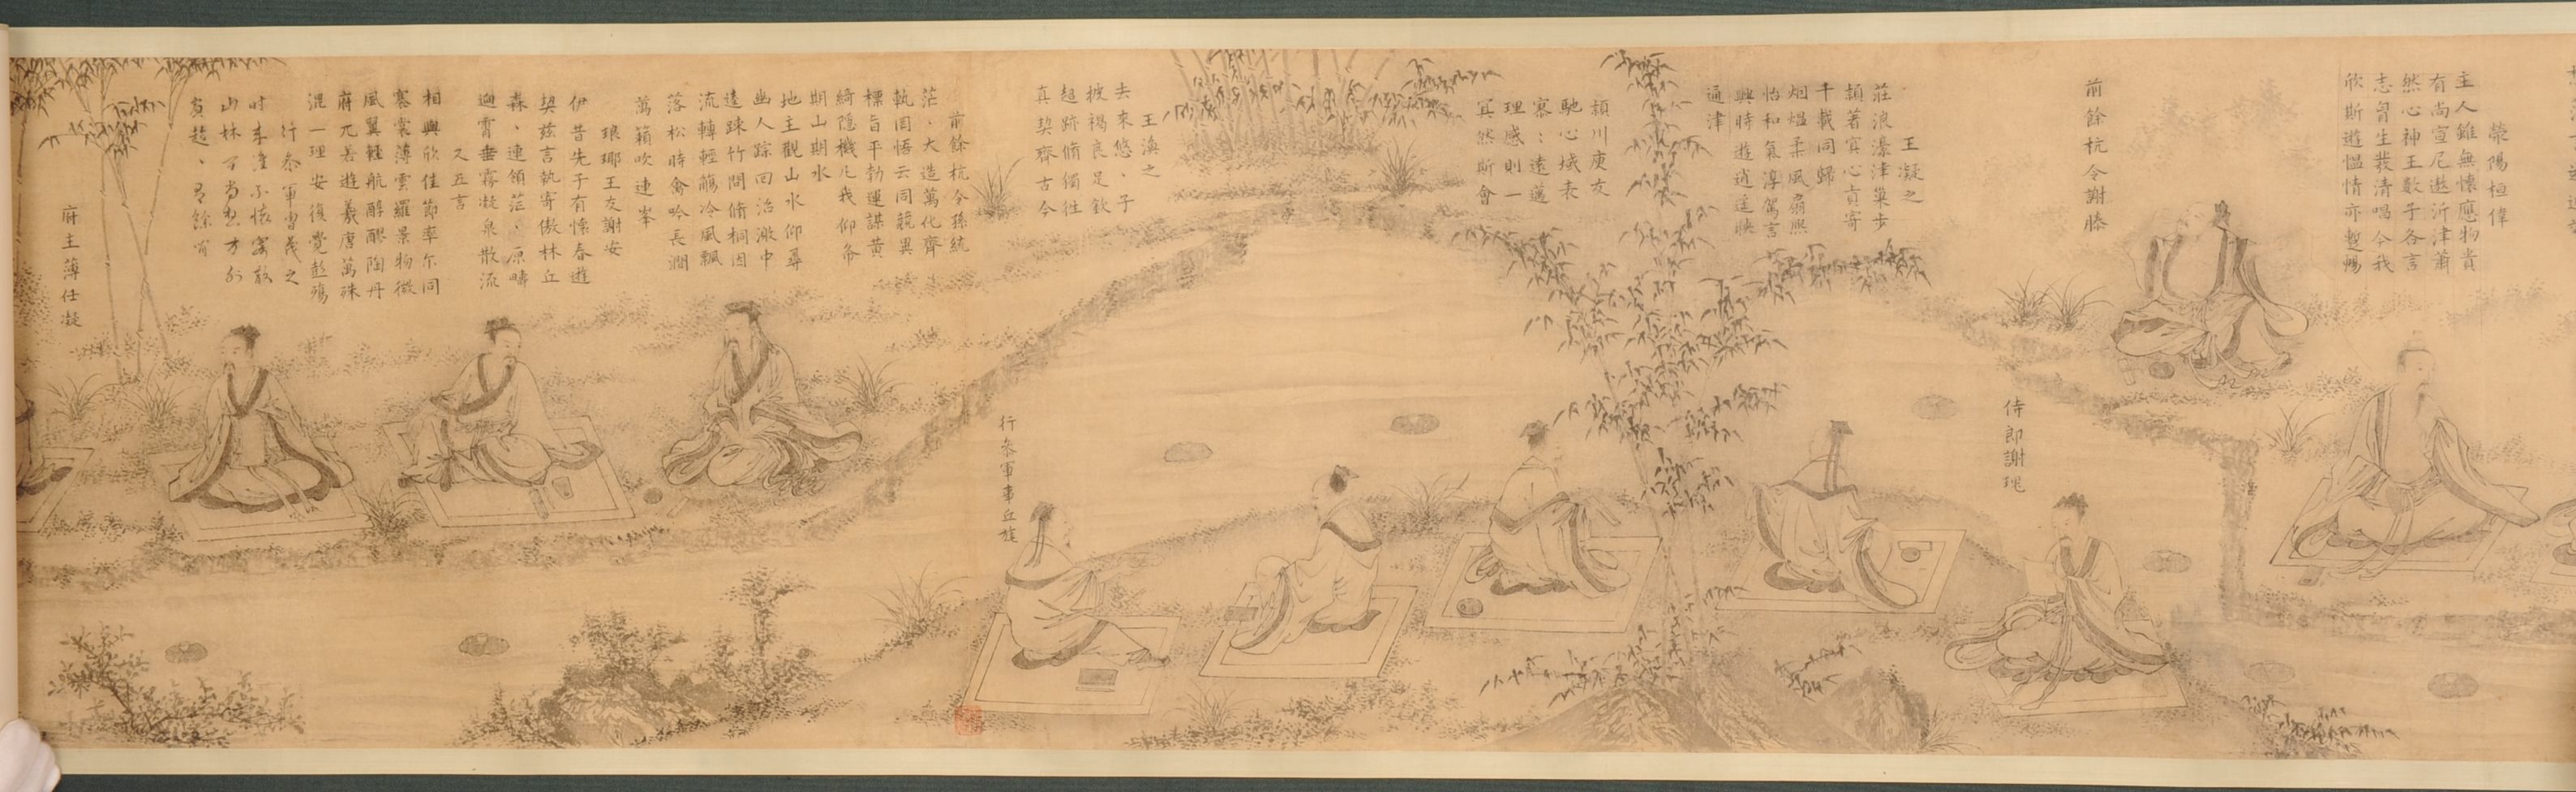 滎陽桓偉
主人雖無懷應物貴
有尚宣尼遨沂津蕭
然心神王數子各言
志曾生發清唱今我
欣斯遊慍情亦暫暢
前餘杭令謝滕
侍郎謝瑰
王凝之
莊浪濠津巢步
潁湄冥心真寄
千載同歸
烟熅柔風扇熙
怡和氣淳駕言
興時遊逍遙映
通津
潁川庾友
馳心域表
寥〻遠邁
理感則一
冥然斯會
王渙之
去來悠〻子
披褐良足欽
超跡脩獨往
真契齊古今
行參軍事丘旄
前餘杭令孫統
茫〻大造萬化齊
軌罔悟玄同競異
標旨平勃運謀黃
綺隱機凡我仰希
期山期水
地主觀山水仰尋
幽人踪回沼激中
逵踈竹間脩桐因
流轉輕觴冷風飄
落松時禽吟長澗
萬籟吹連峯
琅琊王友謝安
伊昔先子有懷春遊
契茲言執寄傲林丘
森〻連領茫〻原疇
迥霄垂霧凝泉散流
又五言
相與欣佳節率尔同
褰裳薄雲羅景物微
風翼輕航醇醪陶丹
府兀若遊羲唐萬殊
混一理安復覺彭殤
行參軍曹茂之
時來誰不懷寄散
山林間尚想方外
賓超〻有餘閒
府主薄任凝